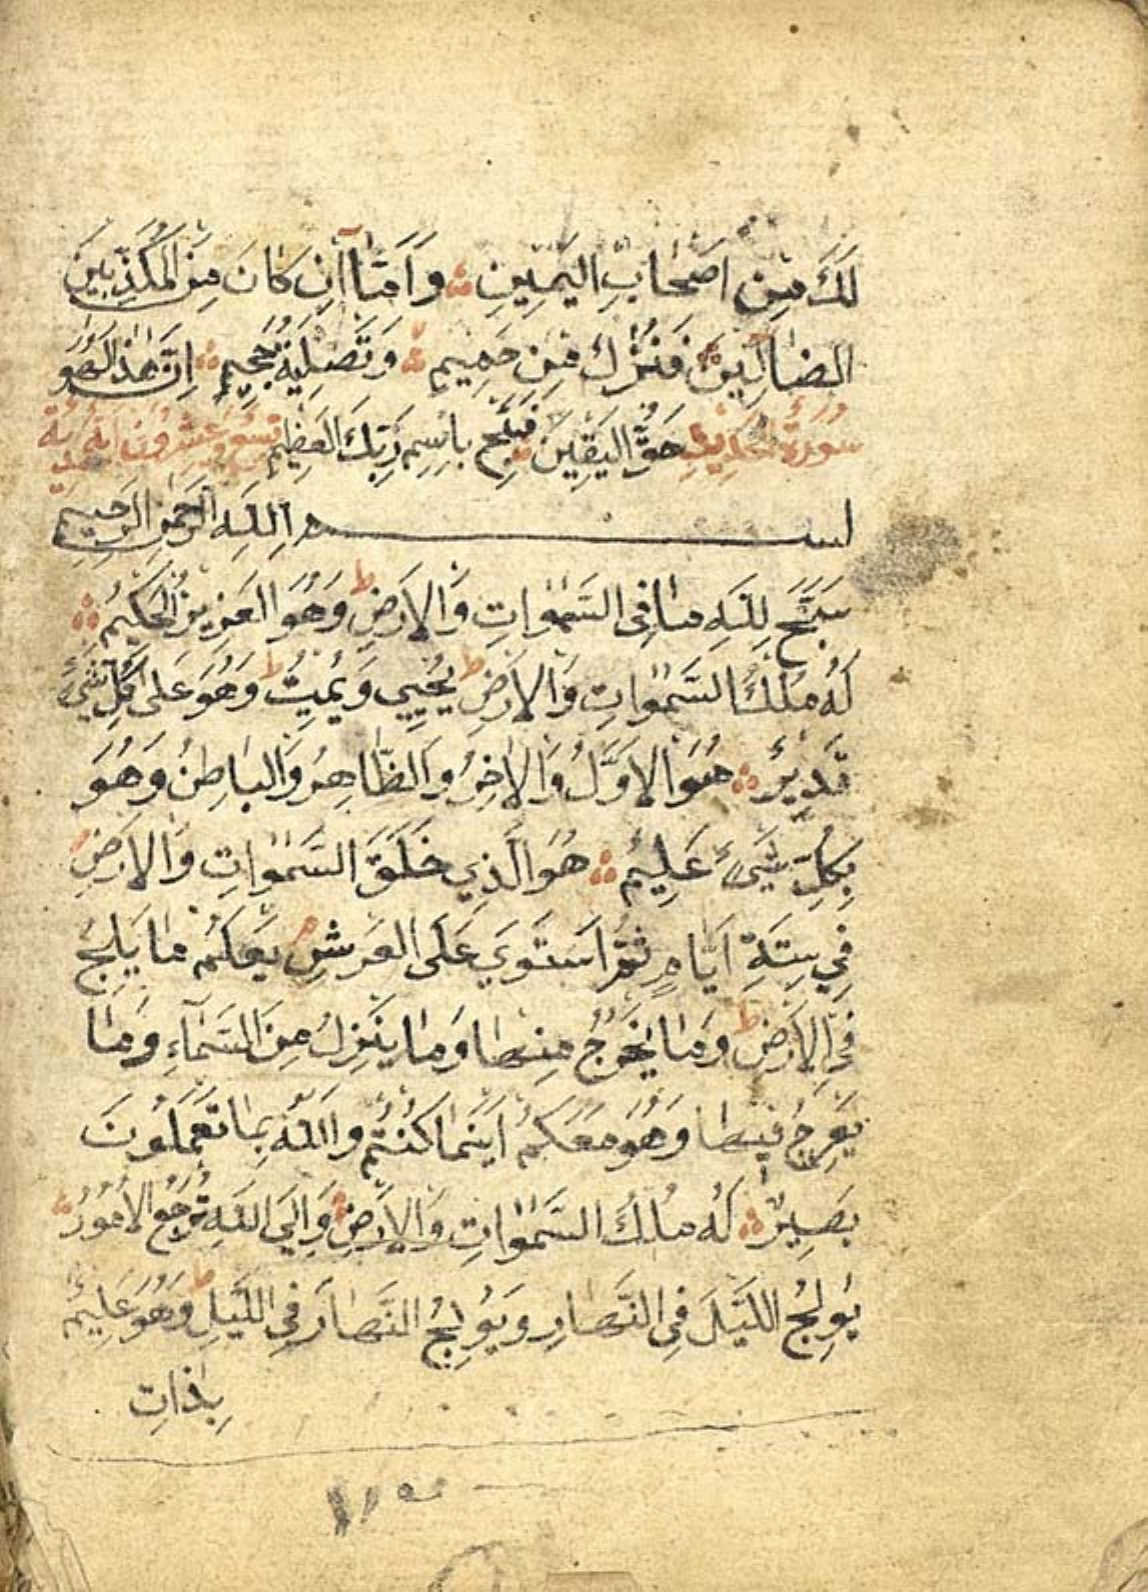 لَكَ مِن اَصْحَابِ اليَمِينِ وَاَمَّا اِن كَانَ مِنَ المُكَذِّبِينَ
الضَالِّينَ فَنُزُلٌ مِن حَمِيمٍ وَتَصْلِيَةُ جَحِيمٍ اِنَّ هٰذا لَهُوَ
سورة الحديد حَقُّ اليَقِينِ فَسَبِّح بِاسْمِ رَبِّكَ العَظِيمِ تسع وعشرون آية
بسم اللهِ الرَّحمٰنِ الرَّحِيمِ
سَبَّحَ لِلّهِ مَا فِى السَّمٰوَاتِ وَالاَرْضِ ط وَهُوَ العَزِيزُ الحَكِيمُ
لَهُ مُلْكُ السَّمٰوَاتِ وَالاَرْضِ ط يُحْيِي وَيُمِيتُ ط وَهُوَ عَلى كُلِّ شَيْءٍ
قَدِيرٌ هُوَ الاَوَّلُ وَالاٰخِرُ وَالظَّاهِرُ وَالبَاطِنُ وَهُوَ
بِكُلِّ شَيْءٍ عَلِيمٌ هُوَ الَّذِي خَلَقَ السَّمٰوَاتِ وَالاَرْضَ
فِي سِتَّةِ اَيَّامٍ ثُمَّ اسْتَوَى عَلَى العَرْشِ يَعْلَمُ مَا يَلِجُ
فِى الاَرْضِ ط وَمَا يَخْرُجُ مِنهَا وَمَا يَنْزِلُ مِنَ السَّمَآءِ وَمَا
يَعْرُجُ فِيهَا وَهُوَ مَعَكُمْ اَيْنَمَا كُنْتُمْ وَاللّهُ بِمَا تَعْمَلُونَ
بَصِيرٌ لَهُ مُلْكُ السَّمٰوَاتِ وَالاَرْضِ وَاِلَى اللّهِ تُرْجَعُ الاُمُورُ
يُولِجُ اللَّيْلَ فِى النَّهَارِ وَيُولِجُ النَّهَارَ فِى اللَّيْلِ ط وَهُوَ عَلِيمٌ
بِذَاتِ